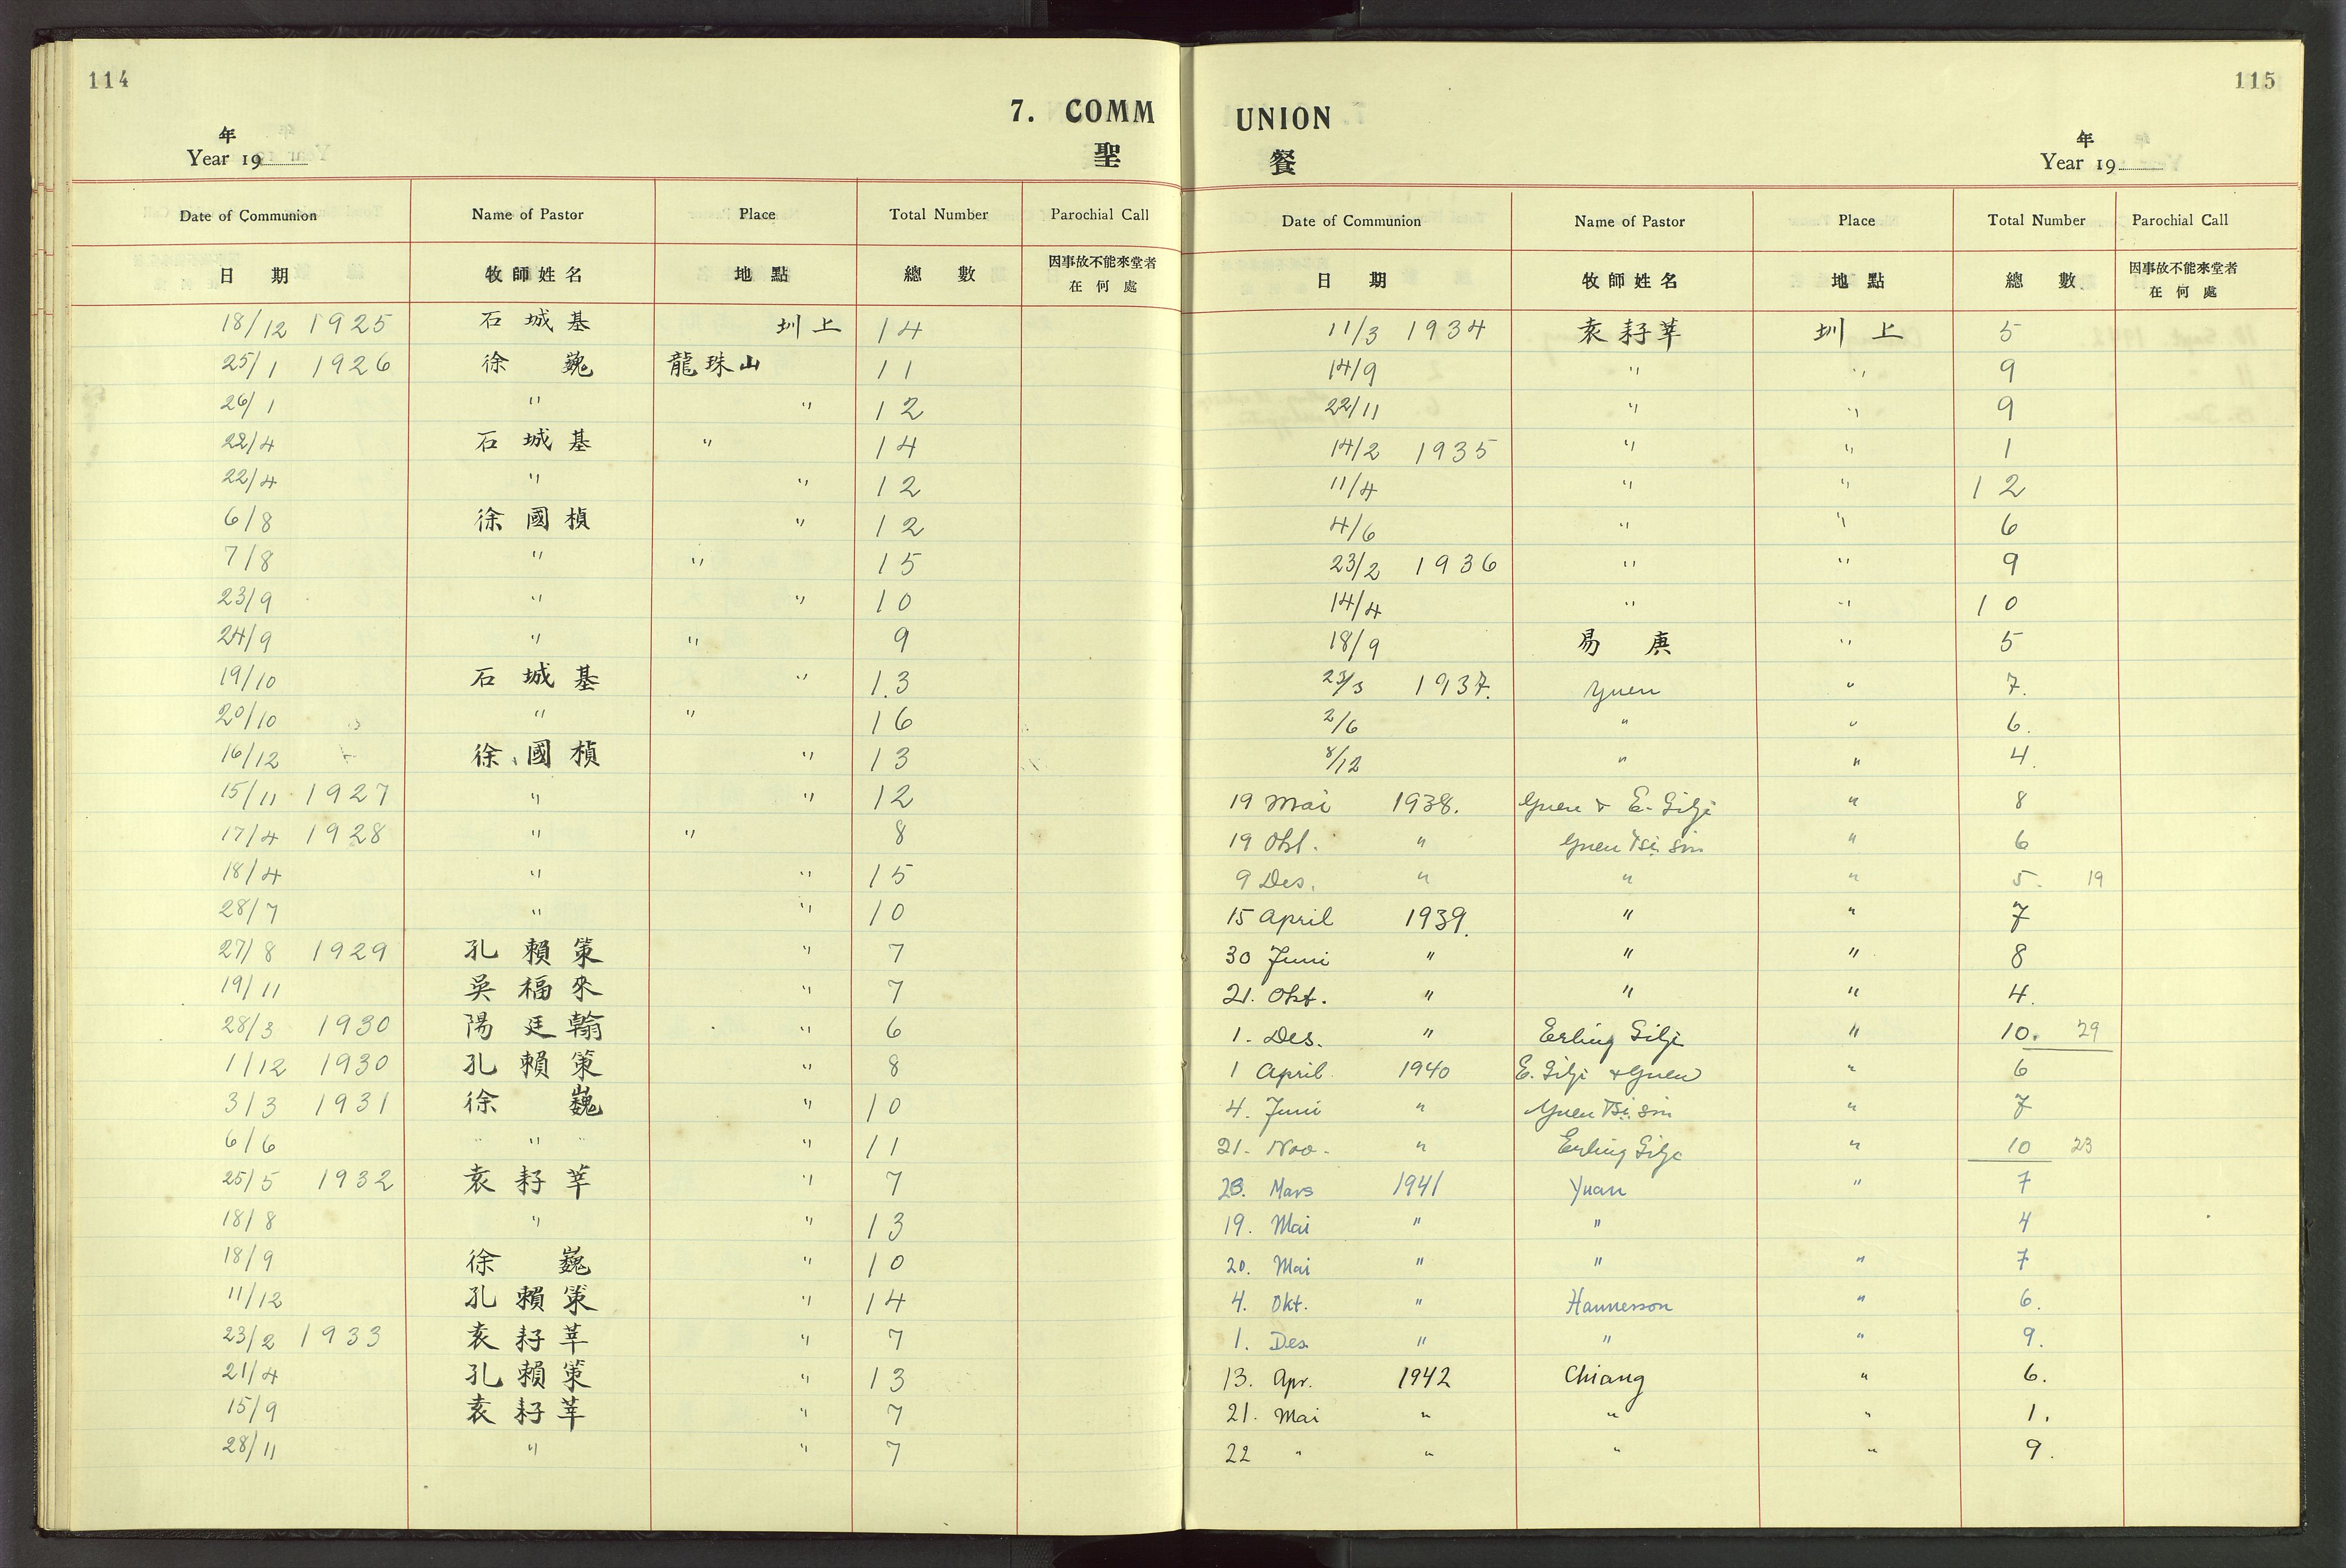 114
7. COMM
年
Year 19
聖
Date of Communion Name of Pastor Place Total Number Parochial Call
日 期 牧師姓名 地 點 總 數 因事故不能來堂者
在 何 處
18/12 1925 石城基 圳上 14
25/1 1926 徐巍 龍珠山 11
26/1 " " 12
22/4 石城基 " 14
22/4 " " 12
6/8 徐國楨 " 12
7/8 " " 15
23/9 " " 10
24/9 " " 9
19/10 石城基 " 13
20/10 " " 16
16/12 徐國楨 " 13
15/11 1927 " " 12
17/4 1928 " " 8
18/4 " " 15
28/7 " " 10
27/8 1929 孔賴策 " 7
19/11 吳福來 " 7
28/3 1930 陽廷翰 " 6
1/12 1930 孔賴策 " 8
3/3 1931 徐巍 " 10
6/6 " " 11
25/5 1932 袁耔莘 " 7
18/8 " " 13
18/9 徐巍 " 10
11/12 孔賴策 " 14
23/2 1933 袁耔莘 " 7
21/4 孔賴策 " 13
15/9 袁耔莘 " 7
28/11 " " 7
115
UNION
年
Year 19
餐
Date of Communion Name of Pastor Place Total Number Parochial Call
日 期 牧師姓名 地 點 總 數 因事故不能來堂者
在 何 處
11/3 1934 袁耔莘 圳上 5
14/9 " " 9
22/11 " " 9
14/2 1935 " " 1
11/4 " " 12
4/6 " " 6
23/2 1936 " " 9
14/4 " " 10
18/9 易庚 " 5
23/3 1937. Yuen " 7.
2/6 " " 6.
8/12 " " 4.
19 Mai 1938. Yuen & E. Gilje " 8
19 Okt. " Yuen Tsi Sin " 6
9 Des. " " " 5. 19
15 April 1939. " " 7
30 Juni " " " 8
21. Okt. " " " 4.
1. Des. " Erling Gilje " 10. 29
1 April 1940 E. Gilje & Yuen " 6
4. Juni " Yuen Tsi Sin " 7
21. Nov. " Erling Gilje " 10 23
23. Mars 1941 Yuan " 7
19. Mai " " 4
20. Mai " " " 7
4. Okt. " Hannesson " 6.
1. Des. " " " 9.
13. Apr. 1942 Chiang " 6.
21. Mai " " " 1.
22 " " " " 9.